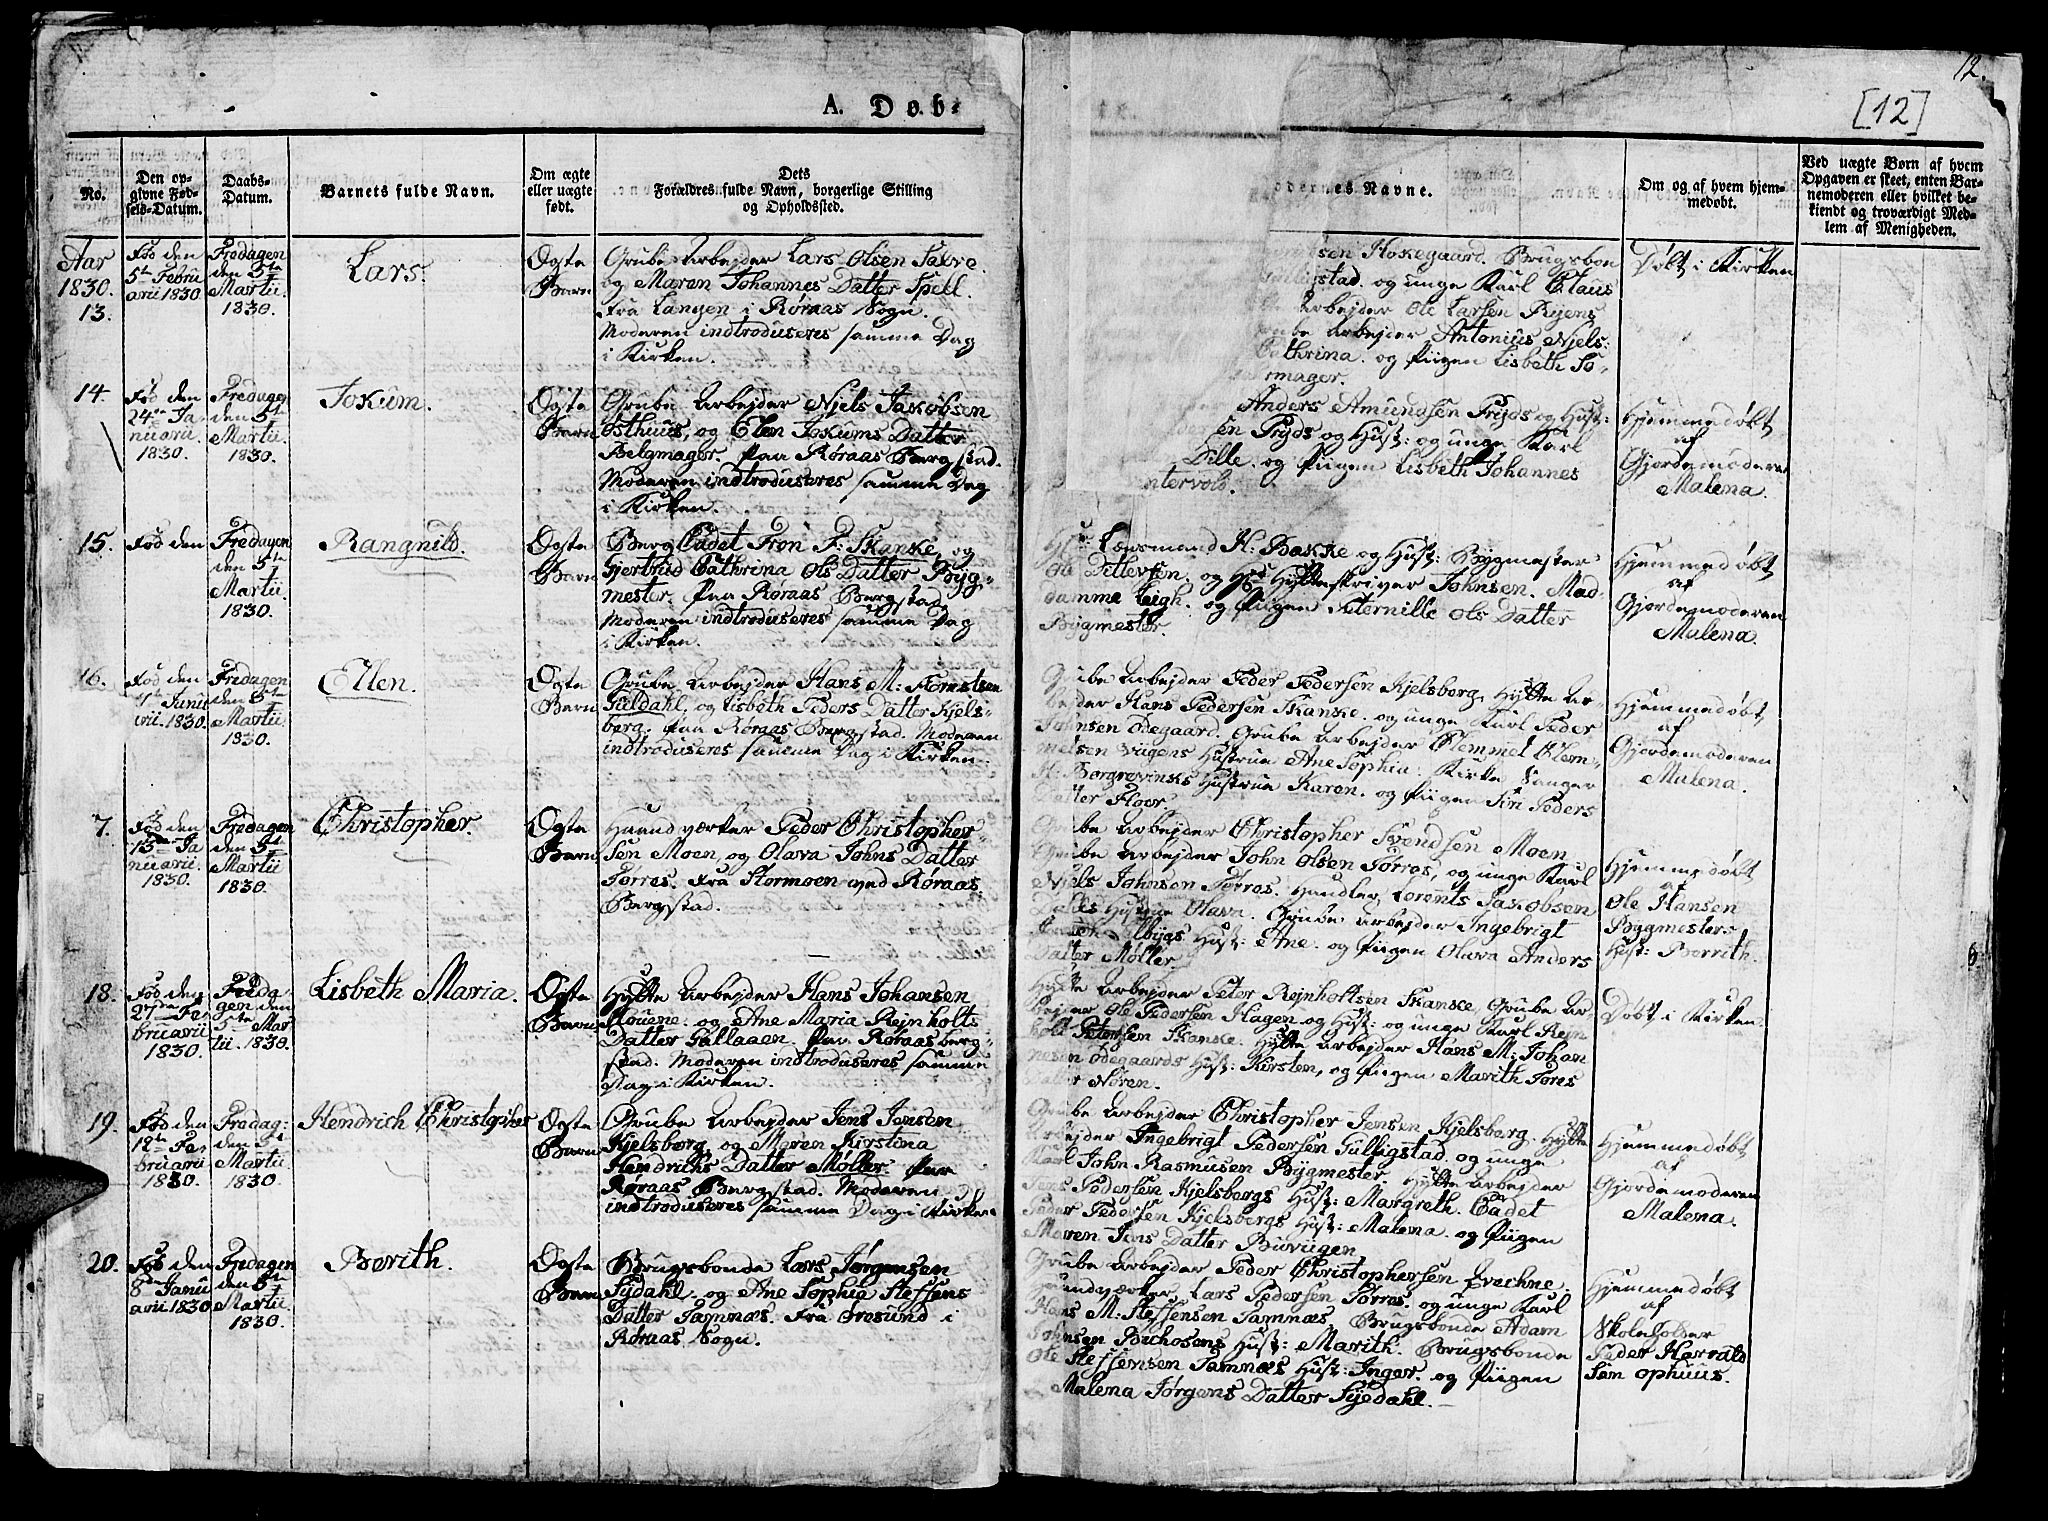 12.
[12]
A. Døb-
No.
Den op-
givne Fød-
sels-Datum.
Daabs-
Datum.
Barnets fulde Navn.
Om ægte
eller uægte
født.
Dets
Forældres fulde Navn, borgerlige Stilling
og Opholdssted.
Navne.
Om og af hvem hjem-
medøbt.
Ved uægte Børn af hvem
Opgaven er skeet, enten Bar-
nemoderen eller hvilket be-
kiendt og troværdigt Med-
lem af Menigheden.
Aar
1830.
13.
Fød den
5te Febru
arii 1830
Fredagen
den 5te
Martii
1830.
Lars.
Ægte
Barn
Grube Arbejder Lars Olsen
og Maren Johannes Datter Spell.
Fra Langen i Røraas Sogn.
Moderen indtroduseres samme Dag
i Kirken.
Hokegaard. Brugsbon
og unge Karl Claus
Arbejder Ole Larsen Ryens
Arbejder Antonius Njels:
Cathrina. og Piigen Lisbeth To-
Døbt i Kirken
14.
Fød den
24de Ja-
nuarii.
1830.
Fredagen
den 5te
Martii.
1830.
Jokum.
Ægte
Barn
Grube Arbejder Njels Jakobsen
Osthuus, og Elen Jokums Datter
Belgmager. Paa Røraas Bergstad.
Moderen indtroduseres samme Dag
i Kirken.
Anders Amundsen Fryds og Hust:
Fryds og Hust: og unge Karl
Dille. og Piigen Lisbeth Johannes
Hjemmedøbt
af
Gjordemoderen
Malena.
15.
Fød den
Fredagen
den 5te
Martii
1830.
Rangnild.
Ægte
Barn
Berg Cadet Fron F: Skanke, og
Gjertrud Cathrina Ols Datter Byg-
mester. Paa Røraas Bergstad
Moderen indtroduseres samme Dag
i Kirken.
Lensmand H: Bakke og Hust: Bygmester
Ole Dittersen. og Hytteskriver Johnsen. Mad-
damme Leigh. og Piigen Peternille Ols Datter
Bygmester.
Hjemmedøbt
af
Gjordemoderen
Malena.
16.
Fød den
Janu
arii. 1830
Fredagen
den 5te
Martii.
1830
Ellen.
Ægte
Barn
Grube Arbejder Hans M:
Guldahl, og Lisbeth Peders Datter Kjels-
berg. Paa Røraas Bergstad. Moderen
indtroduseres samme Dag i Kirken.
Grube Arbejder Peder Pedersen Kjelsberg, Hytte Ar-
bejder Hans Pedersen Skanke. og unge Karl Peder
Johnsen Ødegaard. Grube Arbejder Clemmet Clem-
metsen Vugens Hustrue Ane Sophia: Kirke Sanger
Hustrue Karen. og Piigen Siri Peders
Datter Floor.
Hjemmedøbt
af
Gjordemoderen
Malena.
7.
Fød den
15de Ja
nuarii
1830.
Fredagen
den 5te
Martii
1830.
Christopher.
Ægte
Barn
Haandværker Peder Christopher-
sen Moen, og Olava Johns Datter
Torres. Fra Stormoen ved Røraas
Bergstad.
Grube Arbejder Christopher Svendsen Moen
Grube Arbejder John Olsen Torres, og unge Karl
Njels Johnsen Torres. Handler, Lorents Jakobsen
Hustrue Olava. Grube Arbejder Ingebrigt
Hust: Ane. og Piigen Olava Anders
Datter Møller.
Hjemmedøbt
af
Ole Hansen
Bygmesters
Hust: Berrith.
18.
Fød den
27de Fe
bruarii
1830.
Freda-
gen den
5te Mar
tii. 1830.
Lisbeth Maria.
Ægte
Barn
Hytte Arbejder Hans Johansen
og Ane Maria Rejnholts
Datter Gallaaen. Paa Røraas berg-
stad. Moderen indtroduseres samme
Dag i Kirken.
Hytte Arbejder Peter Rejnholtsen Skanke, Grube Ar
bejder Ole Pedersen Hagen og Hust: og unge Karl Rejn
holt Petersen Skanke. Hytte Arbejder Hans M: Johan
nesen Ødegaards Hust: Kirsten, og Piigen Marith Tores
Datter Noren.
Døbt i Kirken
19.
Fød den
12te Fe
bruarii
1830.
Fredag:
den 5te
Martii
1830.
Hendrich Christopher
Ægte
Barn
Grube Arbejder Jens Jensen
Kjelsberg, og Maren Kirstina
Hendrichs Datter Møller. Paa
Røraas Bergstad. Moderen
indtroduseres samme Dag i Kirken
Grube Arbejder Christopher Jensen Kjelsberg. Hytte
Arbejder Ingebrigt Pedersen Gulligstad. og unge
Karl John Rasmusen Bygmester. Hytte Arbejder
Jens Pedersen Kjelsbergs Hust: Margreth. Cadet
Peder Pedersen Kjelsbergs Hust: Malena. og Piigen
Maren Jens Datter Buvugen
Hjemmedøbt
af
Gjordemoderen
Malena.
20.
Fød den
8de Janu
arii 1830
Fredagen
den 5te
Martii.
1830.
Berith.
Ægte
Barn
Brugsbonde Lars Jørgensen
Sydahl. og Ane Sophia Steffens
Datter Tamnæs. Fra Øresund i
Røraas Sogn.
Grube Arbejder Peder Christophersen
Lars Pedersen Torres. og unge Karl
Hans M: Steffensen Tamnæs, Brugsbonde Adam
Johnsen Hust: Marith. Brugsbonde
Ole Steffensen Tamnæs Hust: Inger. og Piigen
Malena Jørgens Datter Syedahl.
Hjemmedøbt
af
Skoleholder
Peder Harrald
sen ophuus.